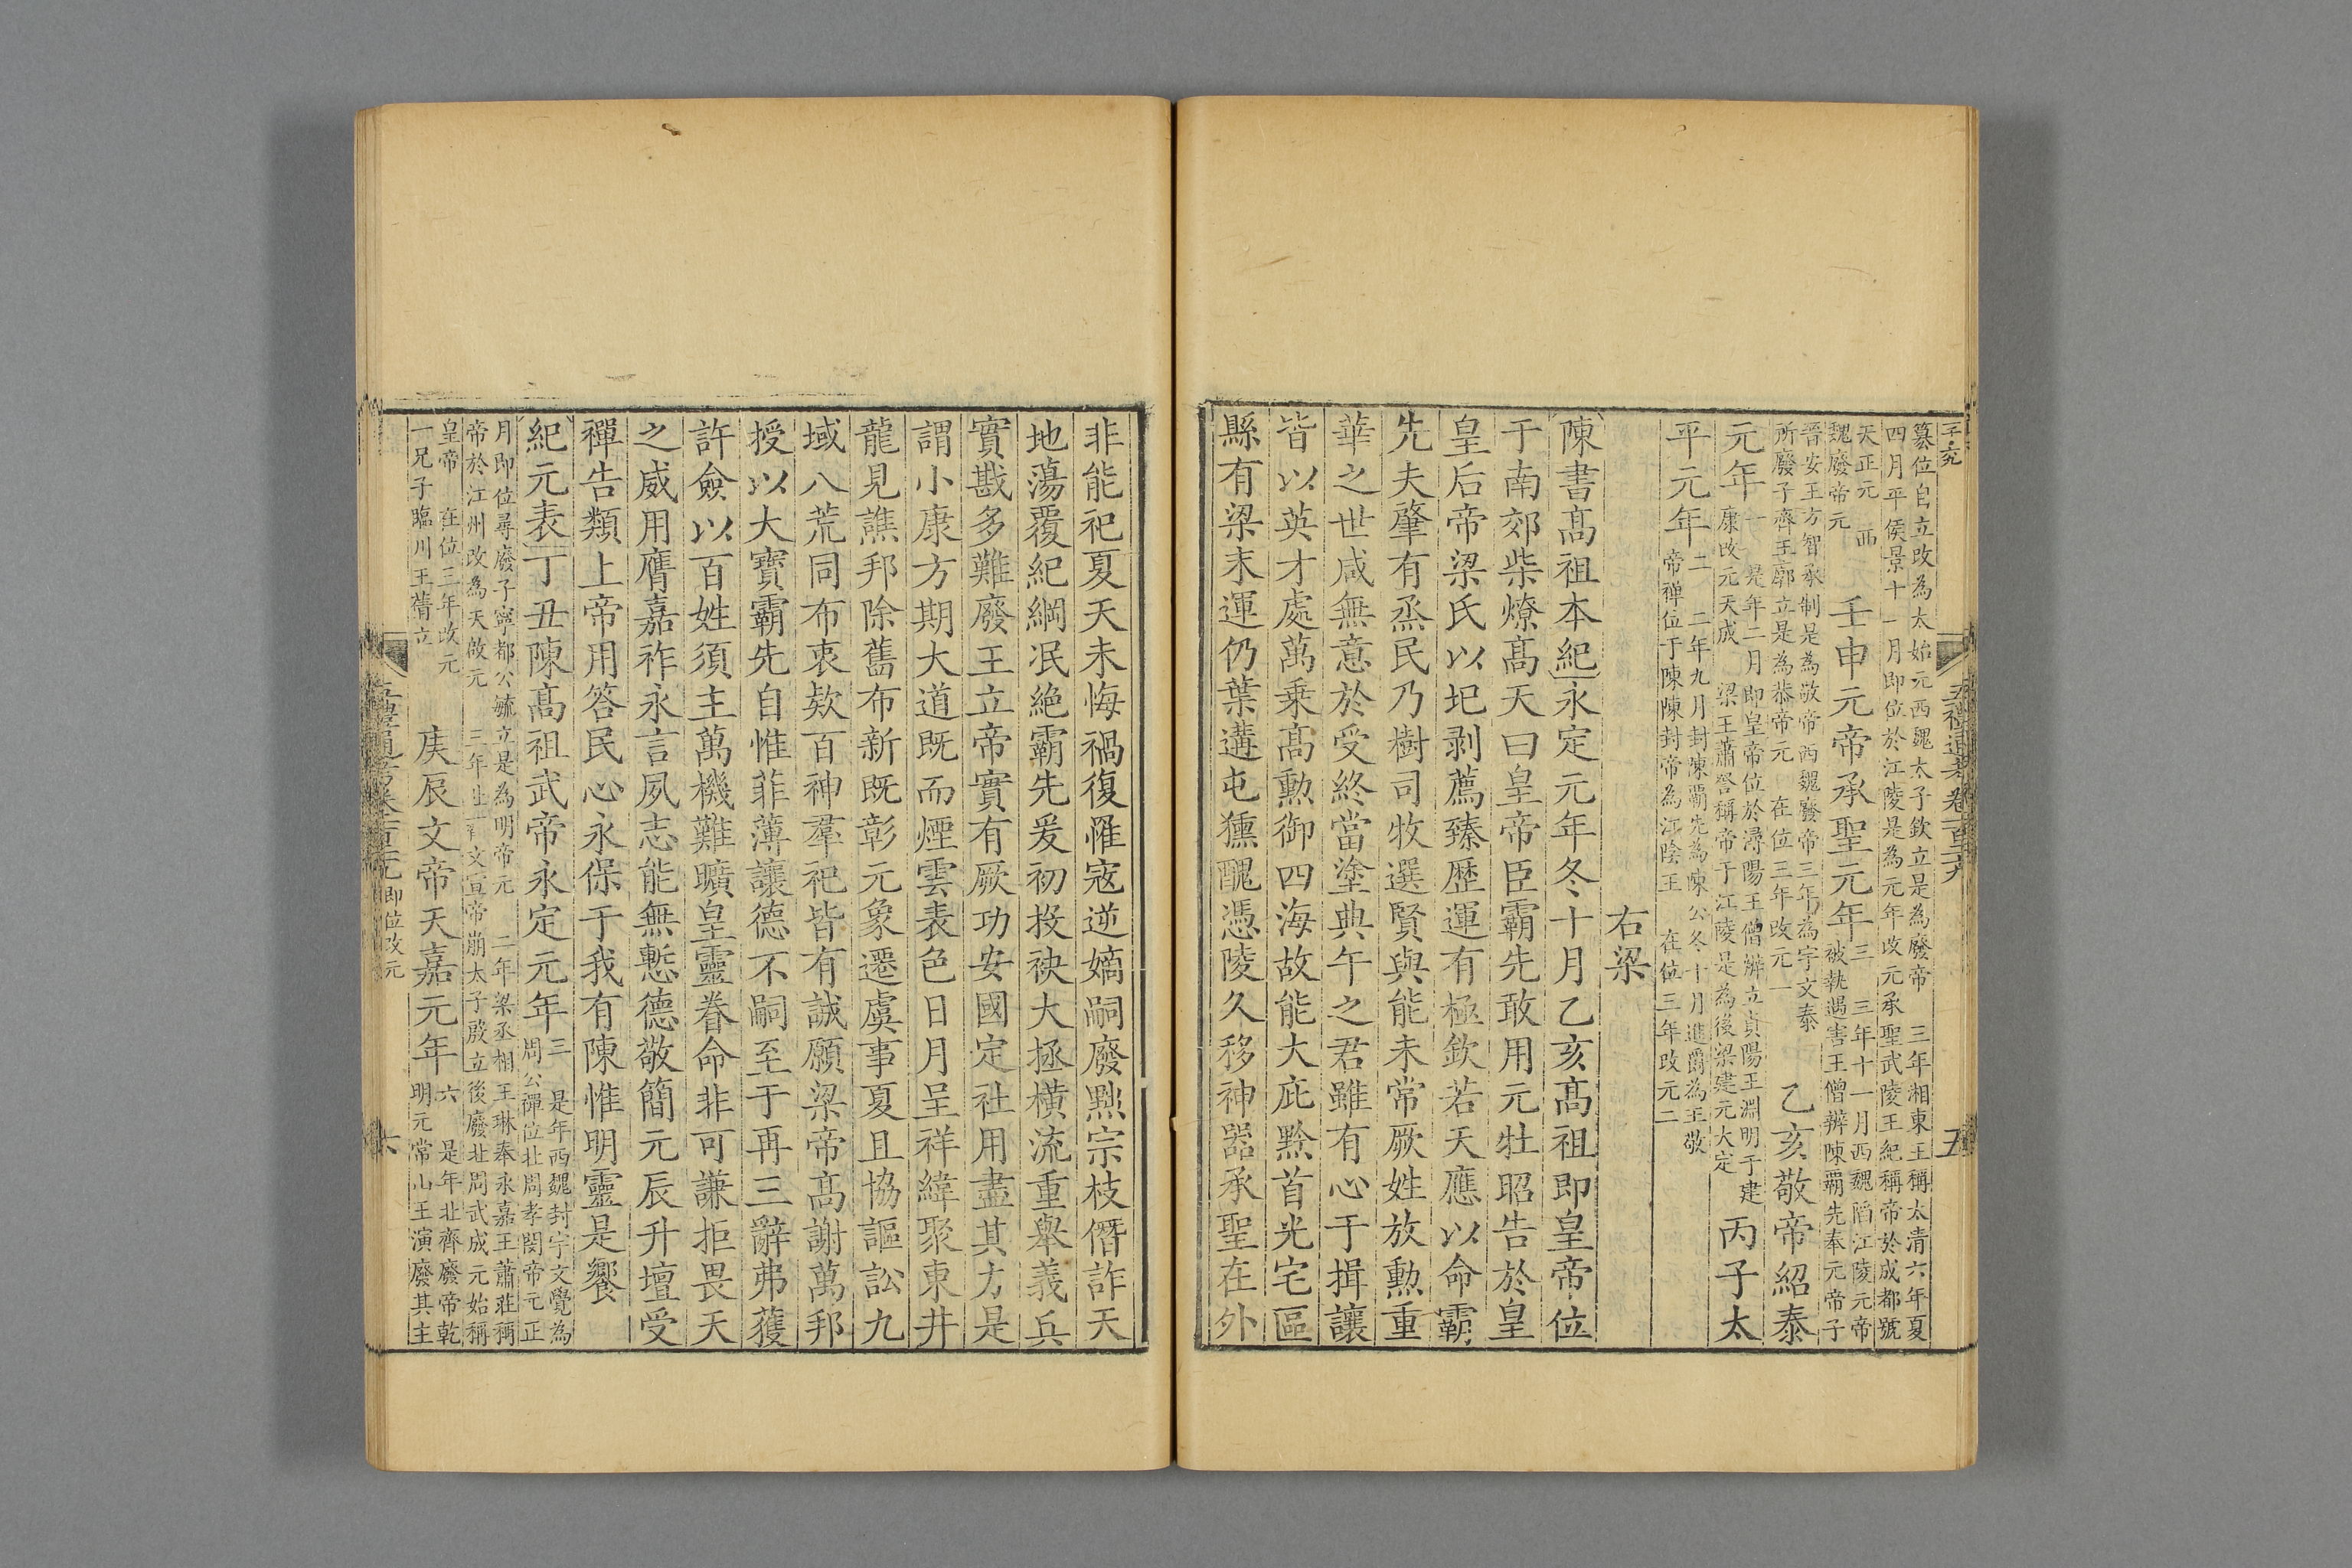 篡位自立改為太始元西魏太子欽立是為廢帝　三年湘東王稱太清六年夏
四月平侯景十一月即位於江陵是為元年改元承聖武陵王紀稱帝於成都號
天正元　西
魏廢帝元
壬申元帝承聖元年
三　三年十一月西魏陷江陵元帝
被執遇害王僧辨陳霸先奉元帝子
晉安王方智承制是為敬帝西魏廢帝三年為宇文泰
所廢子齊王廓立是為恭帝元　在位三年改元一
乙亥敬帝紹泰
元年
一　是年二月即皇帝位於潯陽王僧辨立貞陽王淵明于建
康改元天成　梁王蕭詧稱帝于江陵是為後梁建元大定
丙子太
平元年
二　二年九月封陳霸先為陳公冬十月進爵為王敬
帝禪位于陳陳封帝為江陰王　在位三年改元二
右梁
陳書高祖本紀永定元年冬十月乙亥高祖即皇帝位
于南郊柴燎高天曰皇帝臣霸先敢用元牡昭告於皇
皇后帝梁氏以圯剥薦臻歷運有極欽若天應以命霸
先夫肇有烝民乃樹司牧選賢與能未常厥姓放勳重
華之世咸無意於受終當塗典午之君雖有心于揖讓
皆以英才處萬乗高勲御四海故能大庇黔首光宅區
縣有梁末運仍葉遘屯獯醜憑陵久移神器承聖在外
五禮通考卷一百
五
非能祀夏天未悔禍復罹寇逆嫡嗣廢黜宗枝僭詐天
地蕩覆紀綱泯絶霸先爰初投袂大拯横流重舉義兵
實戡多難廢王立帝實有厥功安國定社用盡其方是
謂小康方期大道既而煙雲表色日月呈祥緯聚東井
龍見譙邦除舊布新既彰元象遷虞事夏且協謳訟九
域八荒同布衷欵百神羣祀皆有誠願梁帝高謝萬邦
授以大寳霸先自惟菲薄讓德不嗣至于再三辭弗獲
許僉以百姓須主萬機難曠皇靈眷命非可謙拒畏天
之威用膺嘉祚永言夙志能無慙德敬簡元辰升壇受
禪告類上帝用答民心永保于我有陳惟明靈是饗
紀元表丁丑陳高祖武帝永定元年
三　是年西魏封宇文覺為
周公禪位北周孝閔帝元正
月即位尋廢子寧都公毓立是為明帝元　二年梁丞相王琳奉永嘉王蕭莊稱
帝於江州改為天啟元　三年北齊文宣帝崩太子殷立後廢北周武成元始稱
皇帝　在位三年改元
一兄子臨川王蒨立
庚辰文帝天嘉元年
六　是年北齊廢帝乾
明元常山王演廢其主
即位改元
六